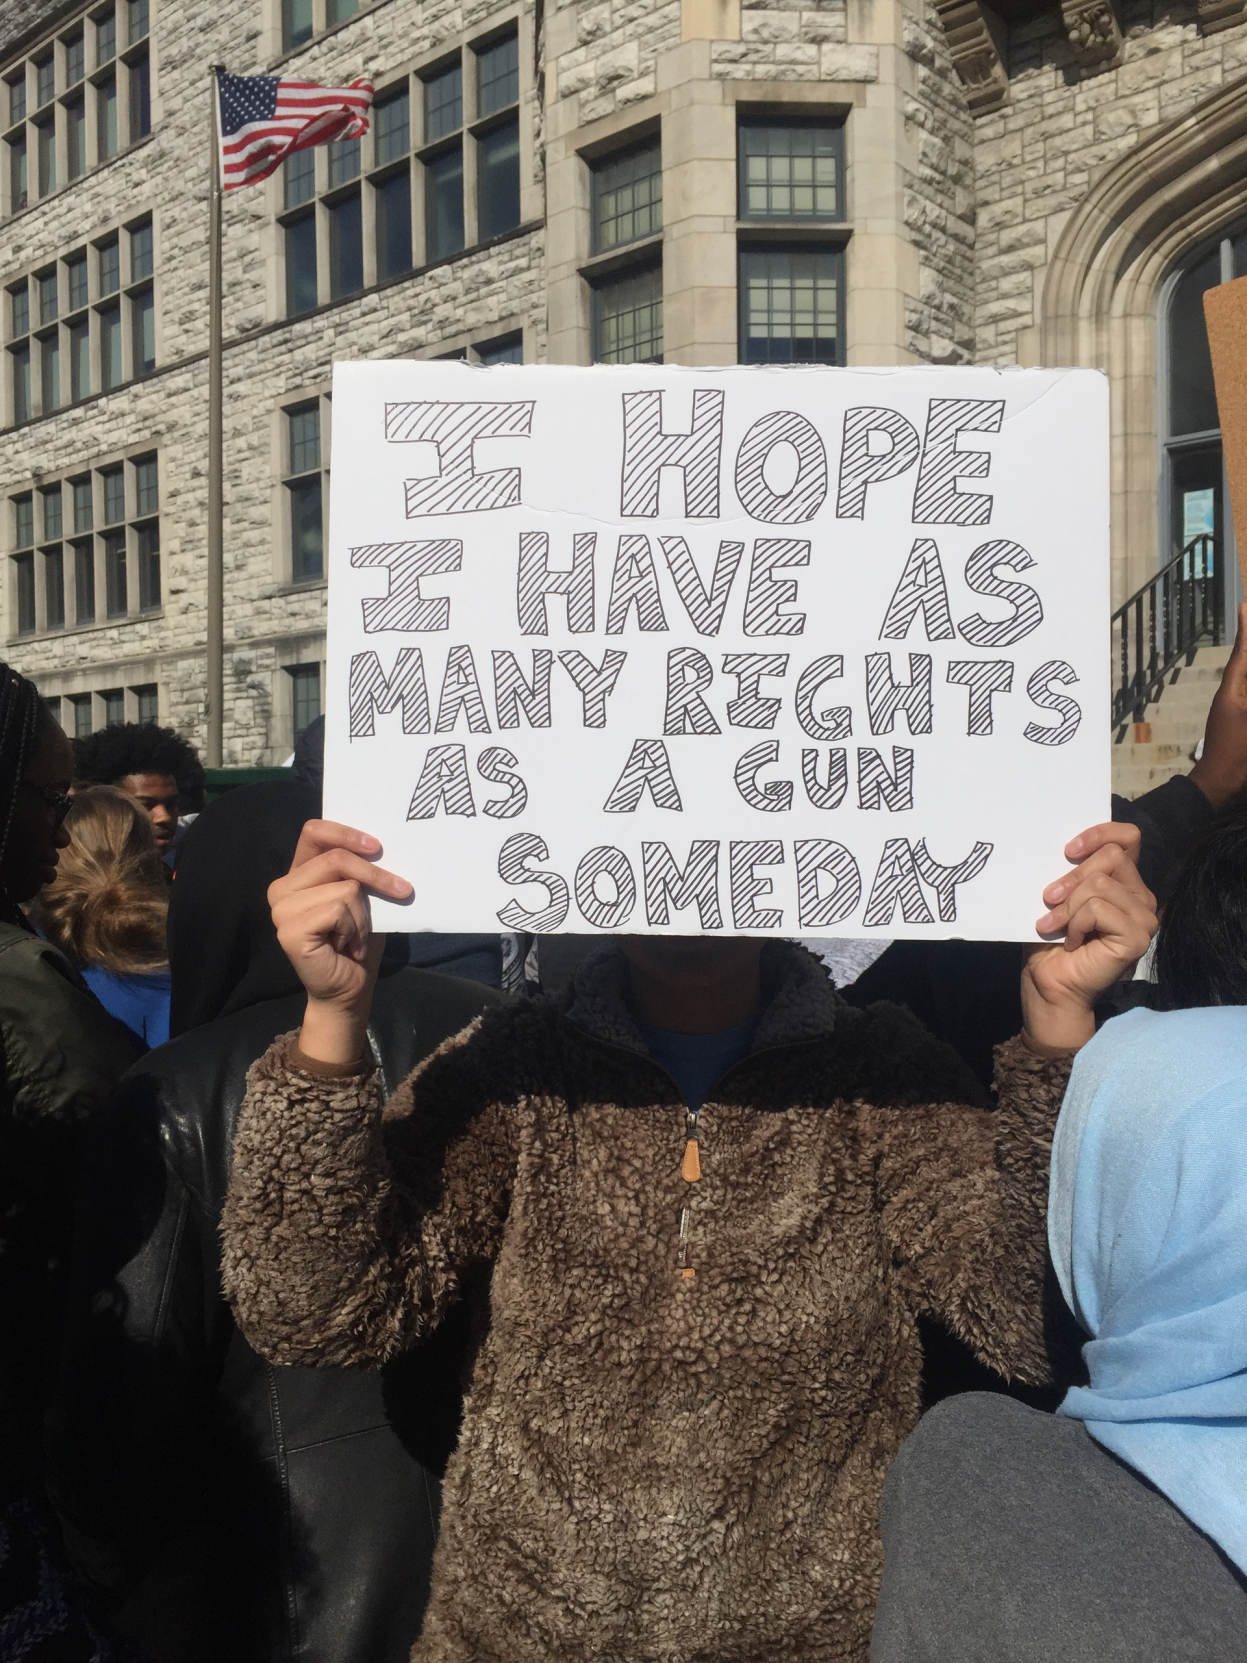 I HOPE
I HAVE AS
MANY RIGHTS
AS A GUN
SOMEDAY